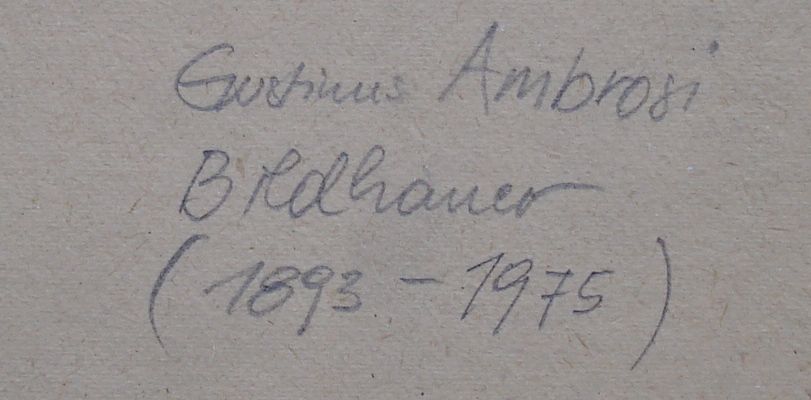 Gustinus Ambrosi
Bildhauer
(1893 - 1975)